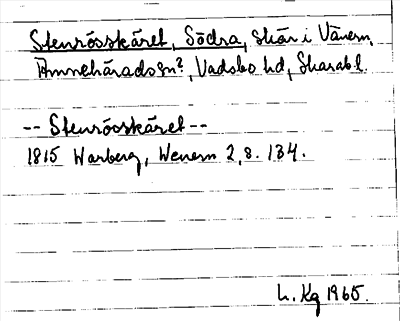 Stenrösskäret, Södra, skär i Vänern,
Amnehärads sn?, Vadsbo hd, Skarab l.
-- Stenrösskäret --
1815 Warberg, Wenern 2, s. 134.
L. Kg 1965.